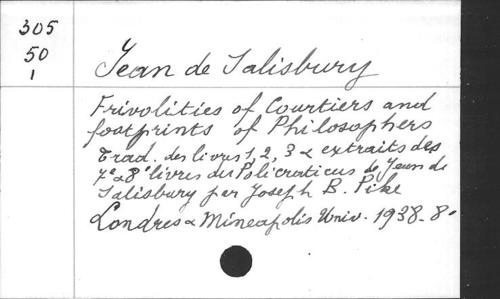 305
50
1
Jean de Salisbury
Frivolities of Courtiers and
footprints of Philosophers
Trad. des livres 1, 2, 3 & extraits des
7e & 8e livres du Policraticus de Jean de
Salisbury par Joseph B. Pike
Londres & Mineapolis Univ. 1938. 8°